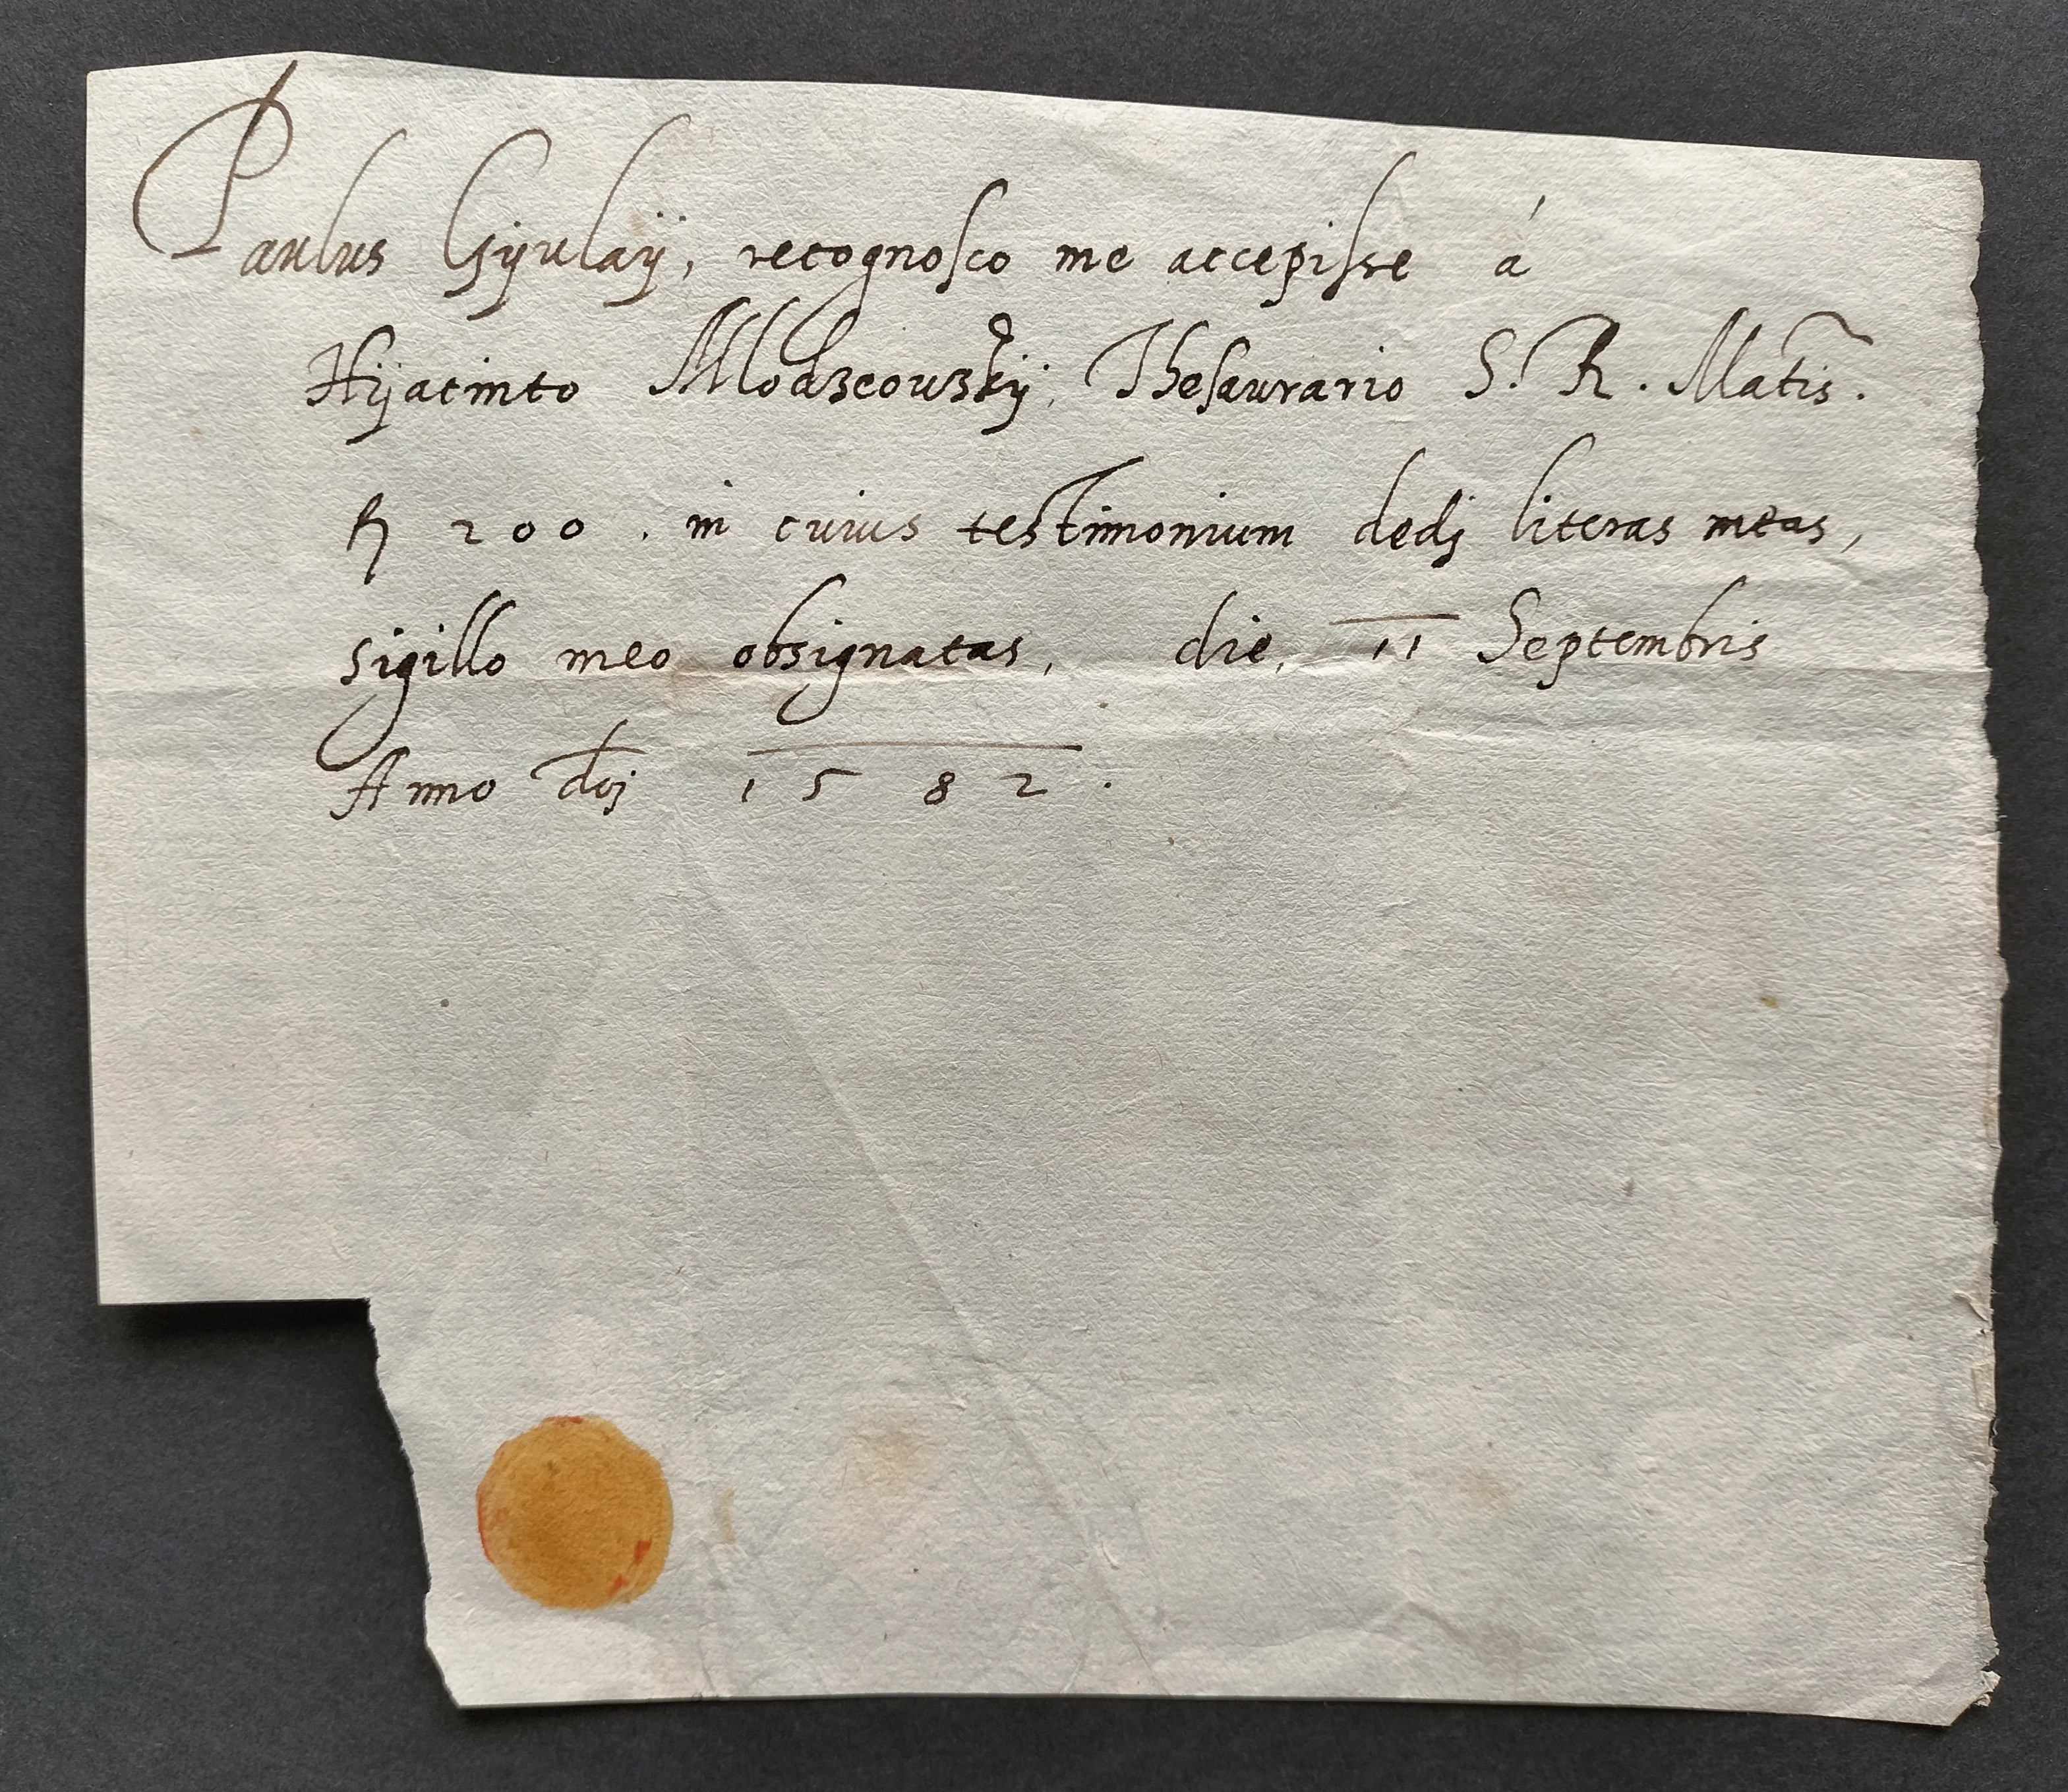 Paulus Gyulaÿ, recognosco me accepisse á
Hÿacinto Mlodzeouzkÿ, Thesaurario S. R. Matis.
fl 200. in cuius testimonium dedj literas meas,
sigillo meo obsignatas, die, 11 Septembris
Anno dnj 1582.